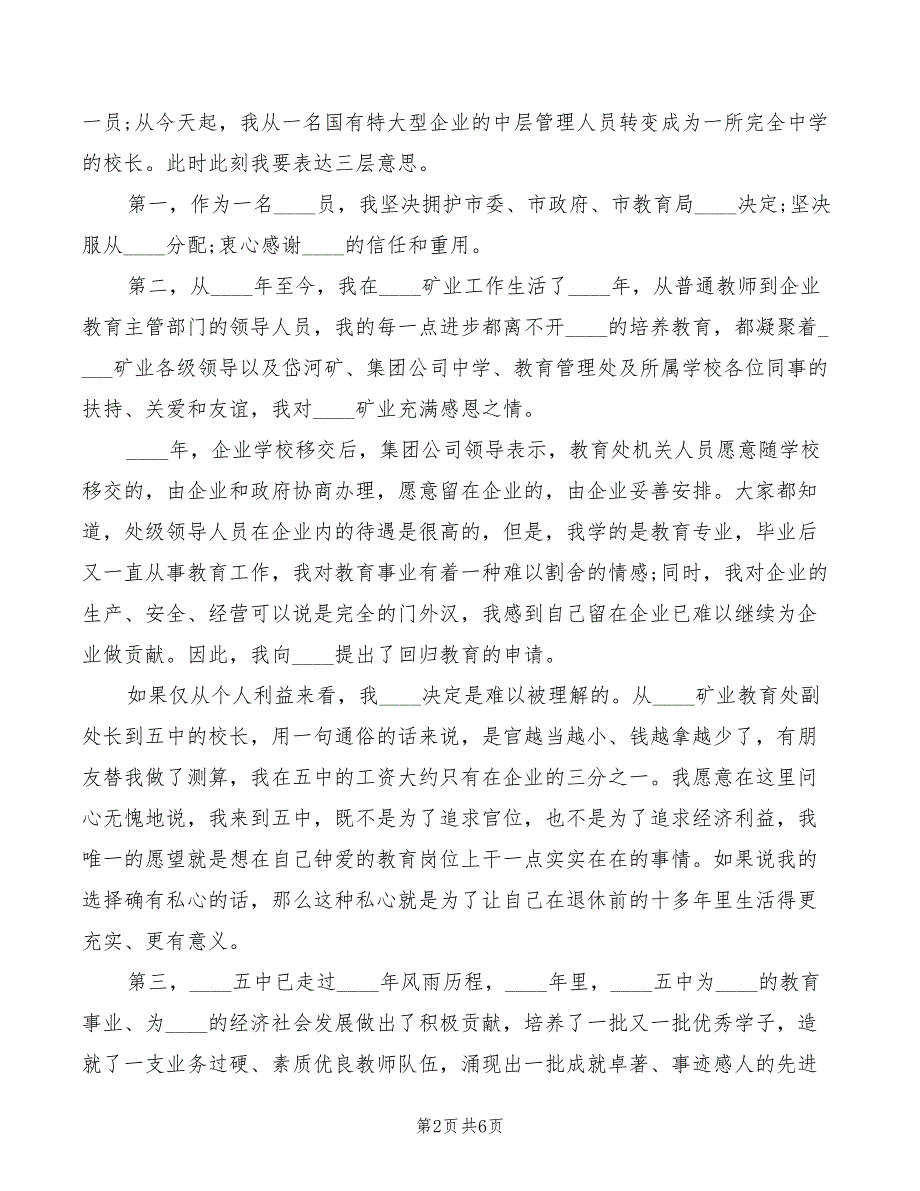 一员;从今天起，我从一名国有特大型企业的中层管理人员转变成为一所完全中学
的校长。此时此刻我要表达三层意思。
第一，作为一名____员，我坚决拥护市委、市政府、市教育局____决定;坚决
服从____分配;衷心感谢____的信任和重用。
第二，从____年至今，我在____矿业工作生活了____年，从普通教师到企业
教育主管部门的领导人员，我的每一点进步都离不开____的培养教育，都凝聚着_
___矿业各级领导以及岱河矿、集团公司中学、教育管理处及所属学校各位同事的
扶持、关爱和友谊，我对____矿业充满感恩之情。
____年，企业学校移交后，集团公司领导表示，教育处机关人员愿意随学校
移交的，由企业和政府协商办理，愿意留在企业的，由企业妥善安排。大家都知
道，处级领导人员在企业内的待遇是很高的，但是，我学的是教育专业，毕业后
又一直从事教育工作，我对教育事业有着一种难以割舍的情感;同时，我对企业的
生产、安全、经营可以说是完全的门外汉，我感到自己留在企业已难以继续为企
业做贡献。因此，我向____提出了回归教育的申请。
如果仅从个人利益来看，我____决定是难以被理解的。从____矿业教育处副
处长到五中的校长，用一句通俗的话来说，是官越当越小、钱越拿越少了，有朋
友替我做了测算，我在五中的工资大约只有在企业的三分之一。我愿意在这里问
心无愧地说，我来到五中，既不是为了追求官位，也不是为了追求经济利益，我
唯一的愿望就是想在自己钟爱的教育岗位上干一点实实在在的事情。如果说我的
选择确有私心的话，那么这种私心就是为了让自己在退休前的十多年里生活得更
充实、更有意义。
第三，____五中已走过____年风雨历程，____年里，____五中为____的教育
事业、为____的经济社会发展做出了积极贡献，培养了一批又一批优秀学子，造
就了一支业务过硬、素质优良教师队伍，涌现出一批成就卓著、事迹感人的先进
第2页 共6页